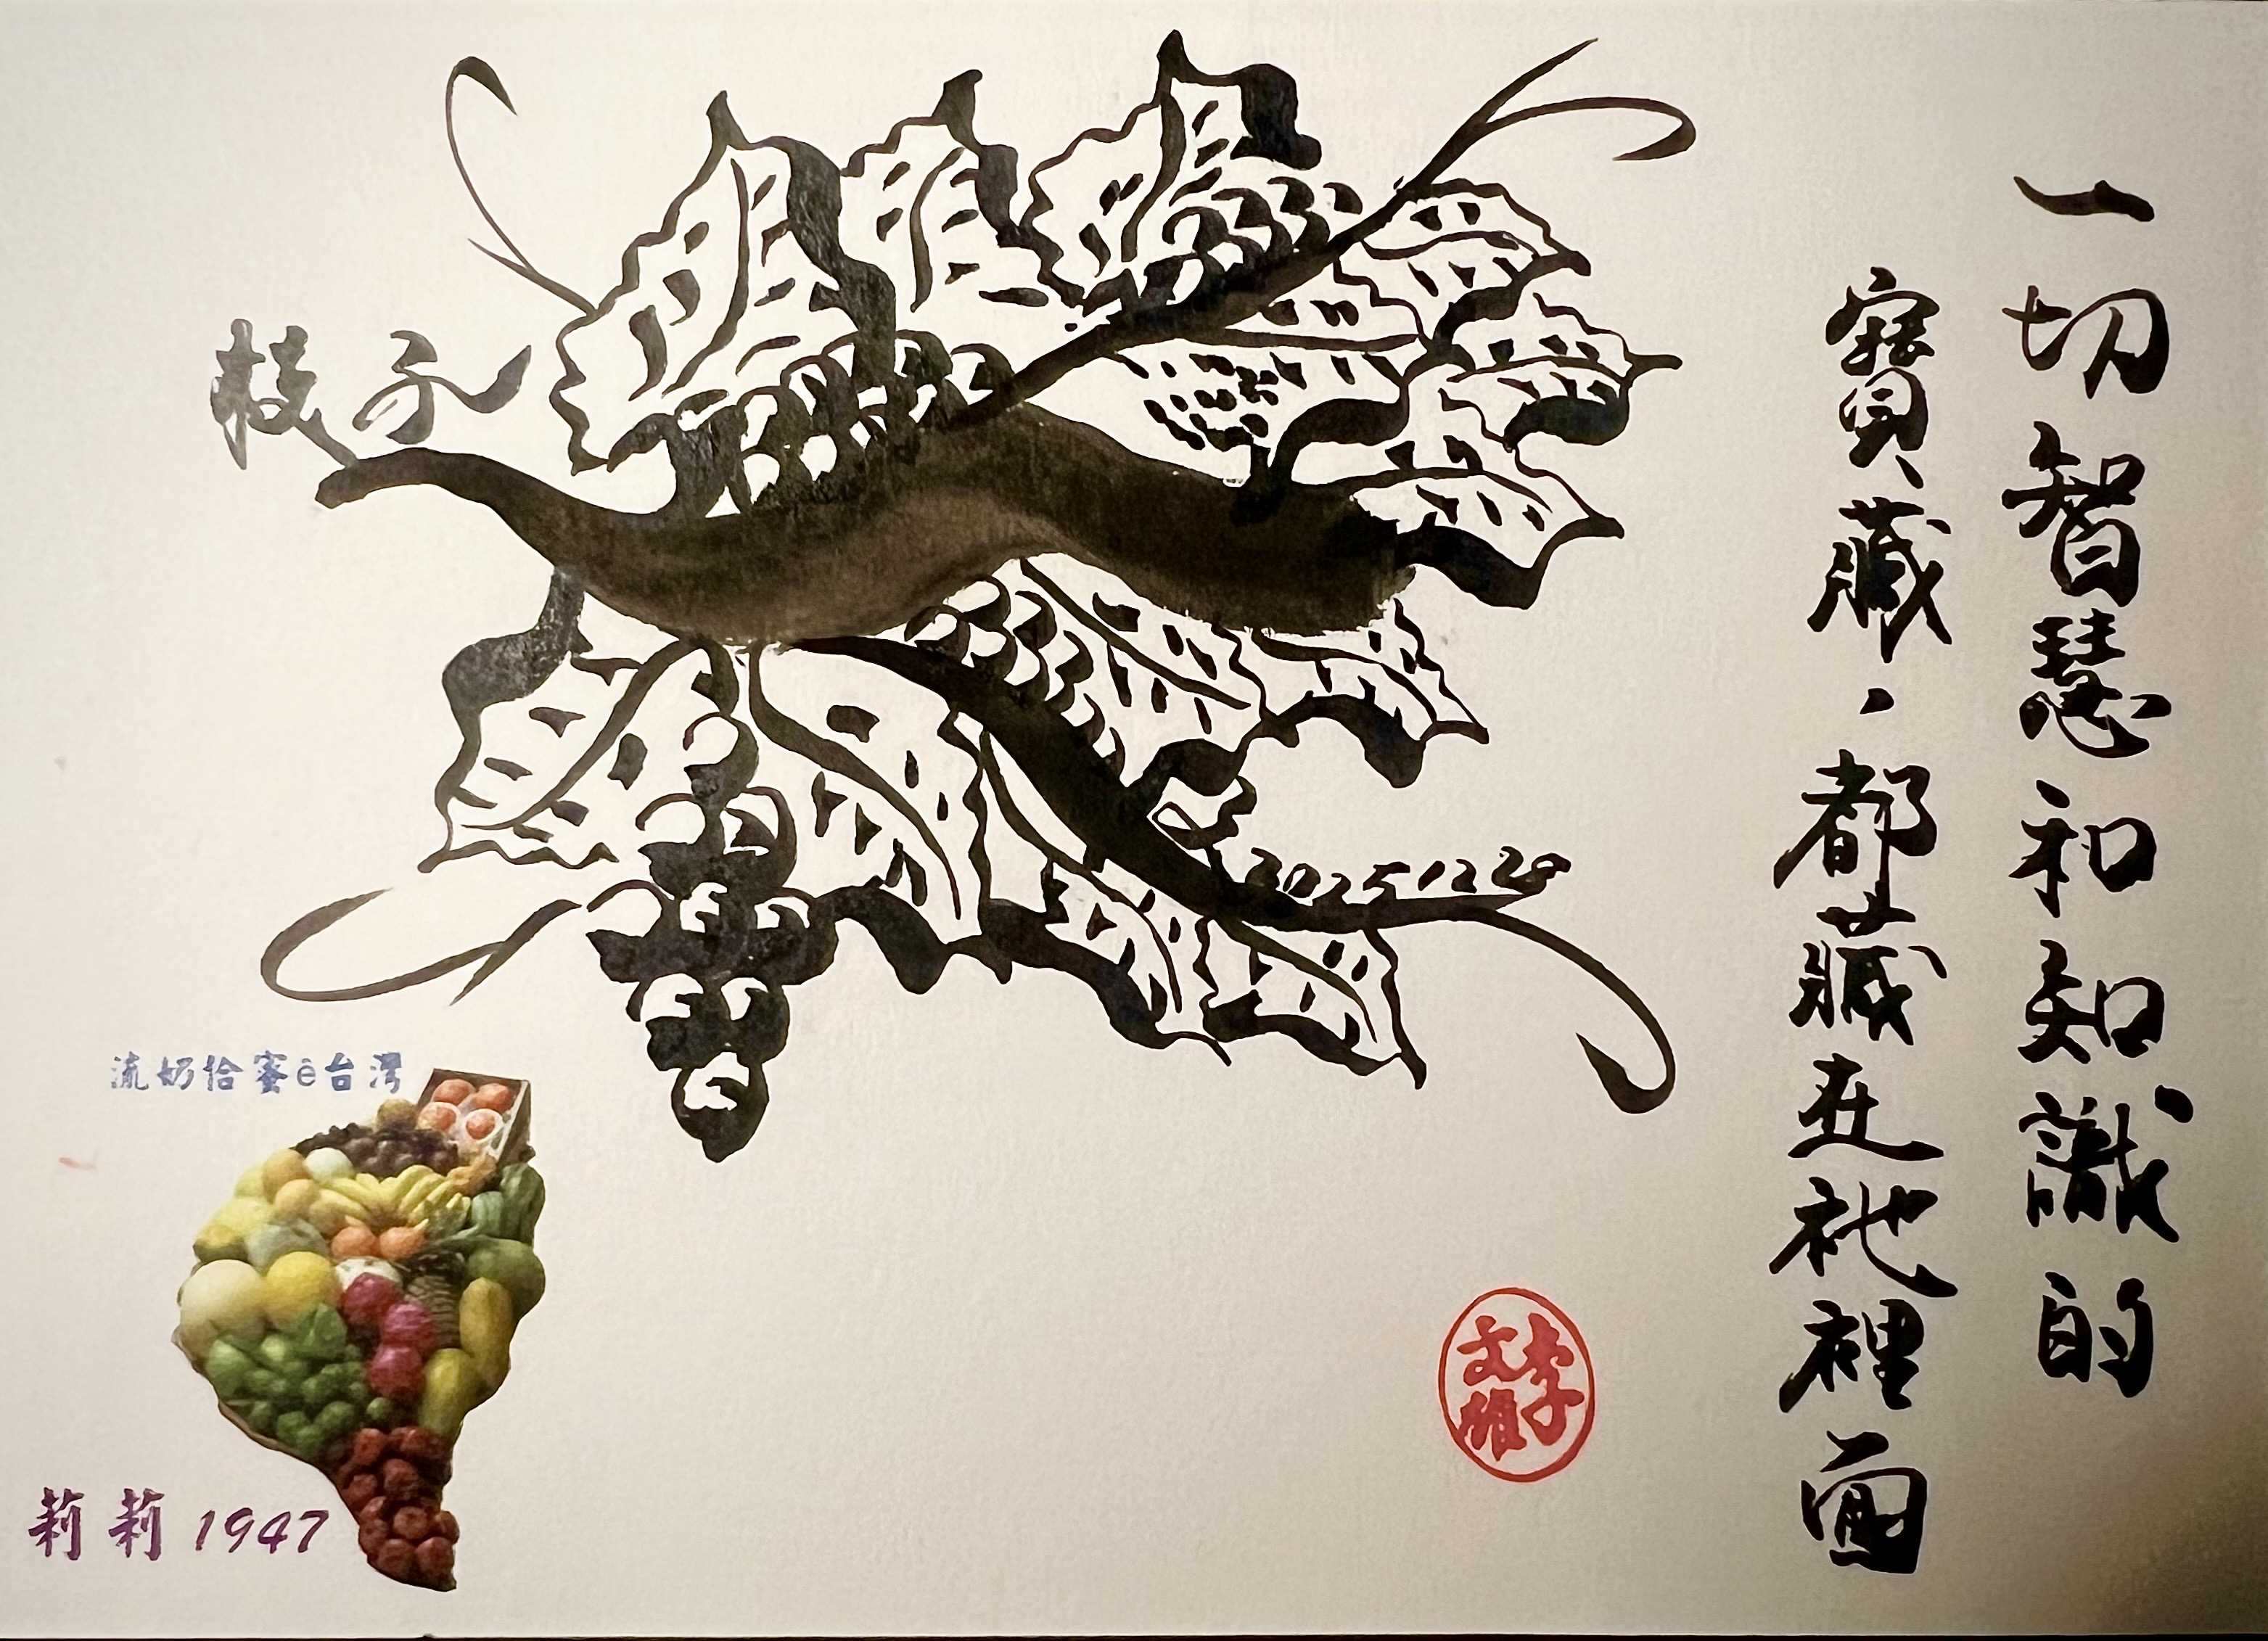 一切智慧和知識的
寶藏，都藏在祂裡面
枝子
20251228
流奶恰蜜ê台灣
莉莉1947
李
文雄